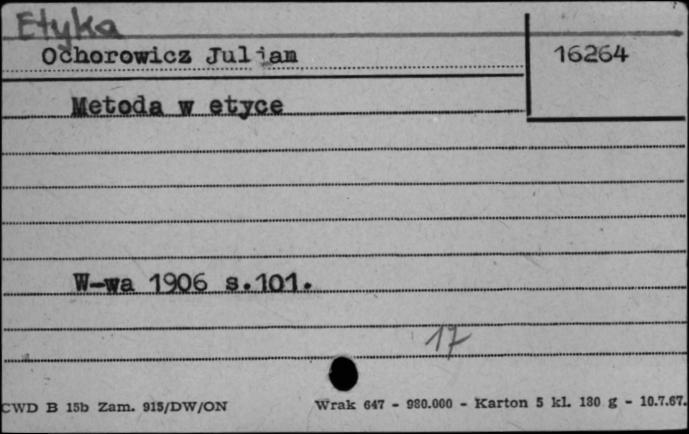 Etyka
Ochorowicz Julian
16264
Metoda w etyce
W-wa 1906 s.101.
17
CWD B 15b Zam. 915/DW/ON
Wrak 647 - 980.000 - Karton 5 kl. 180 g - 10.7.67.